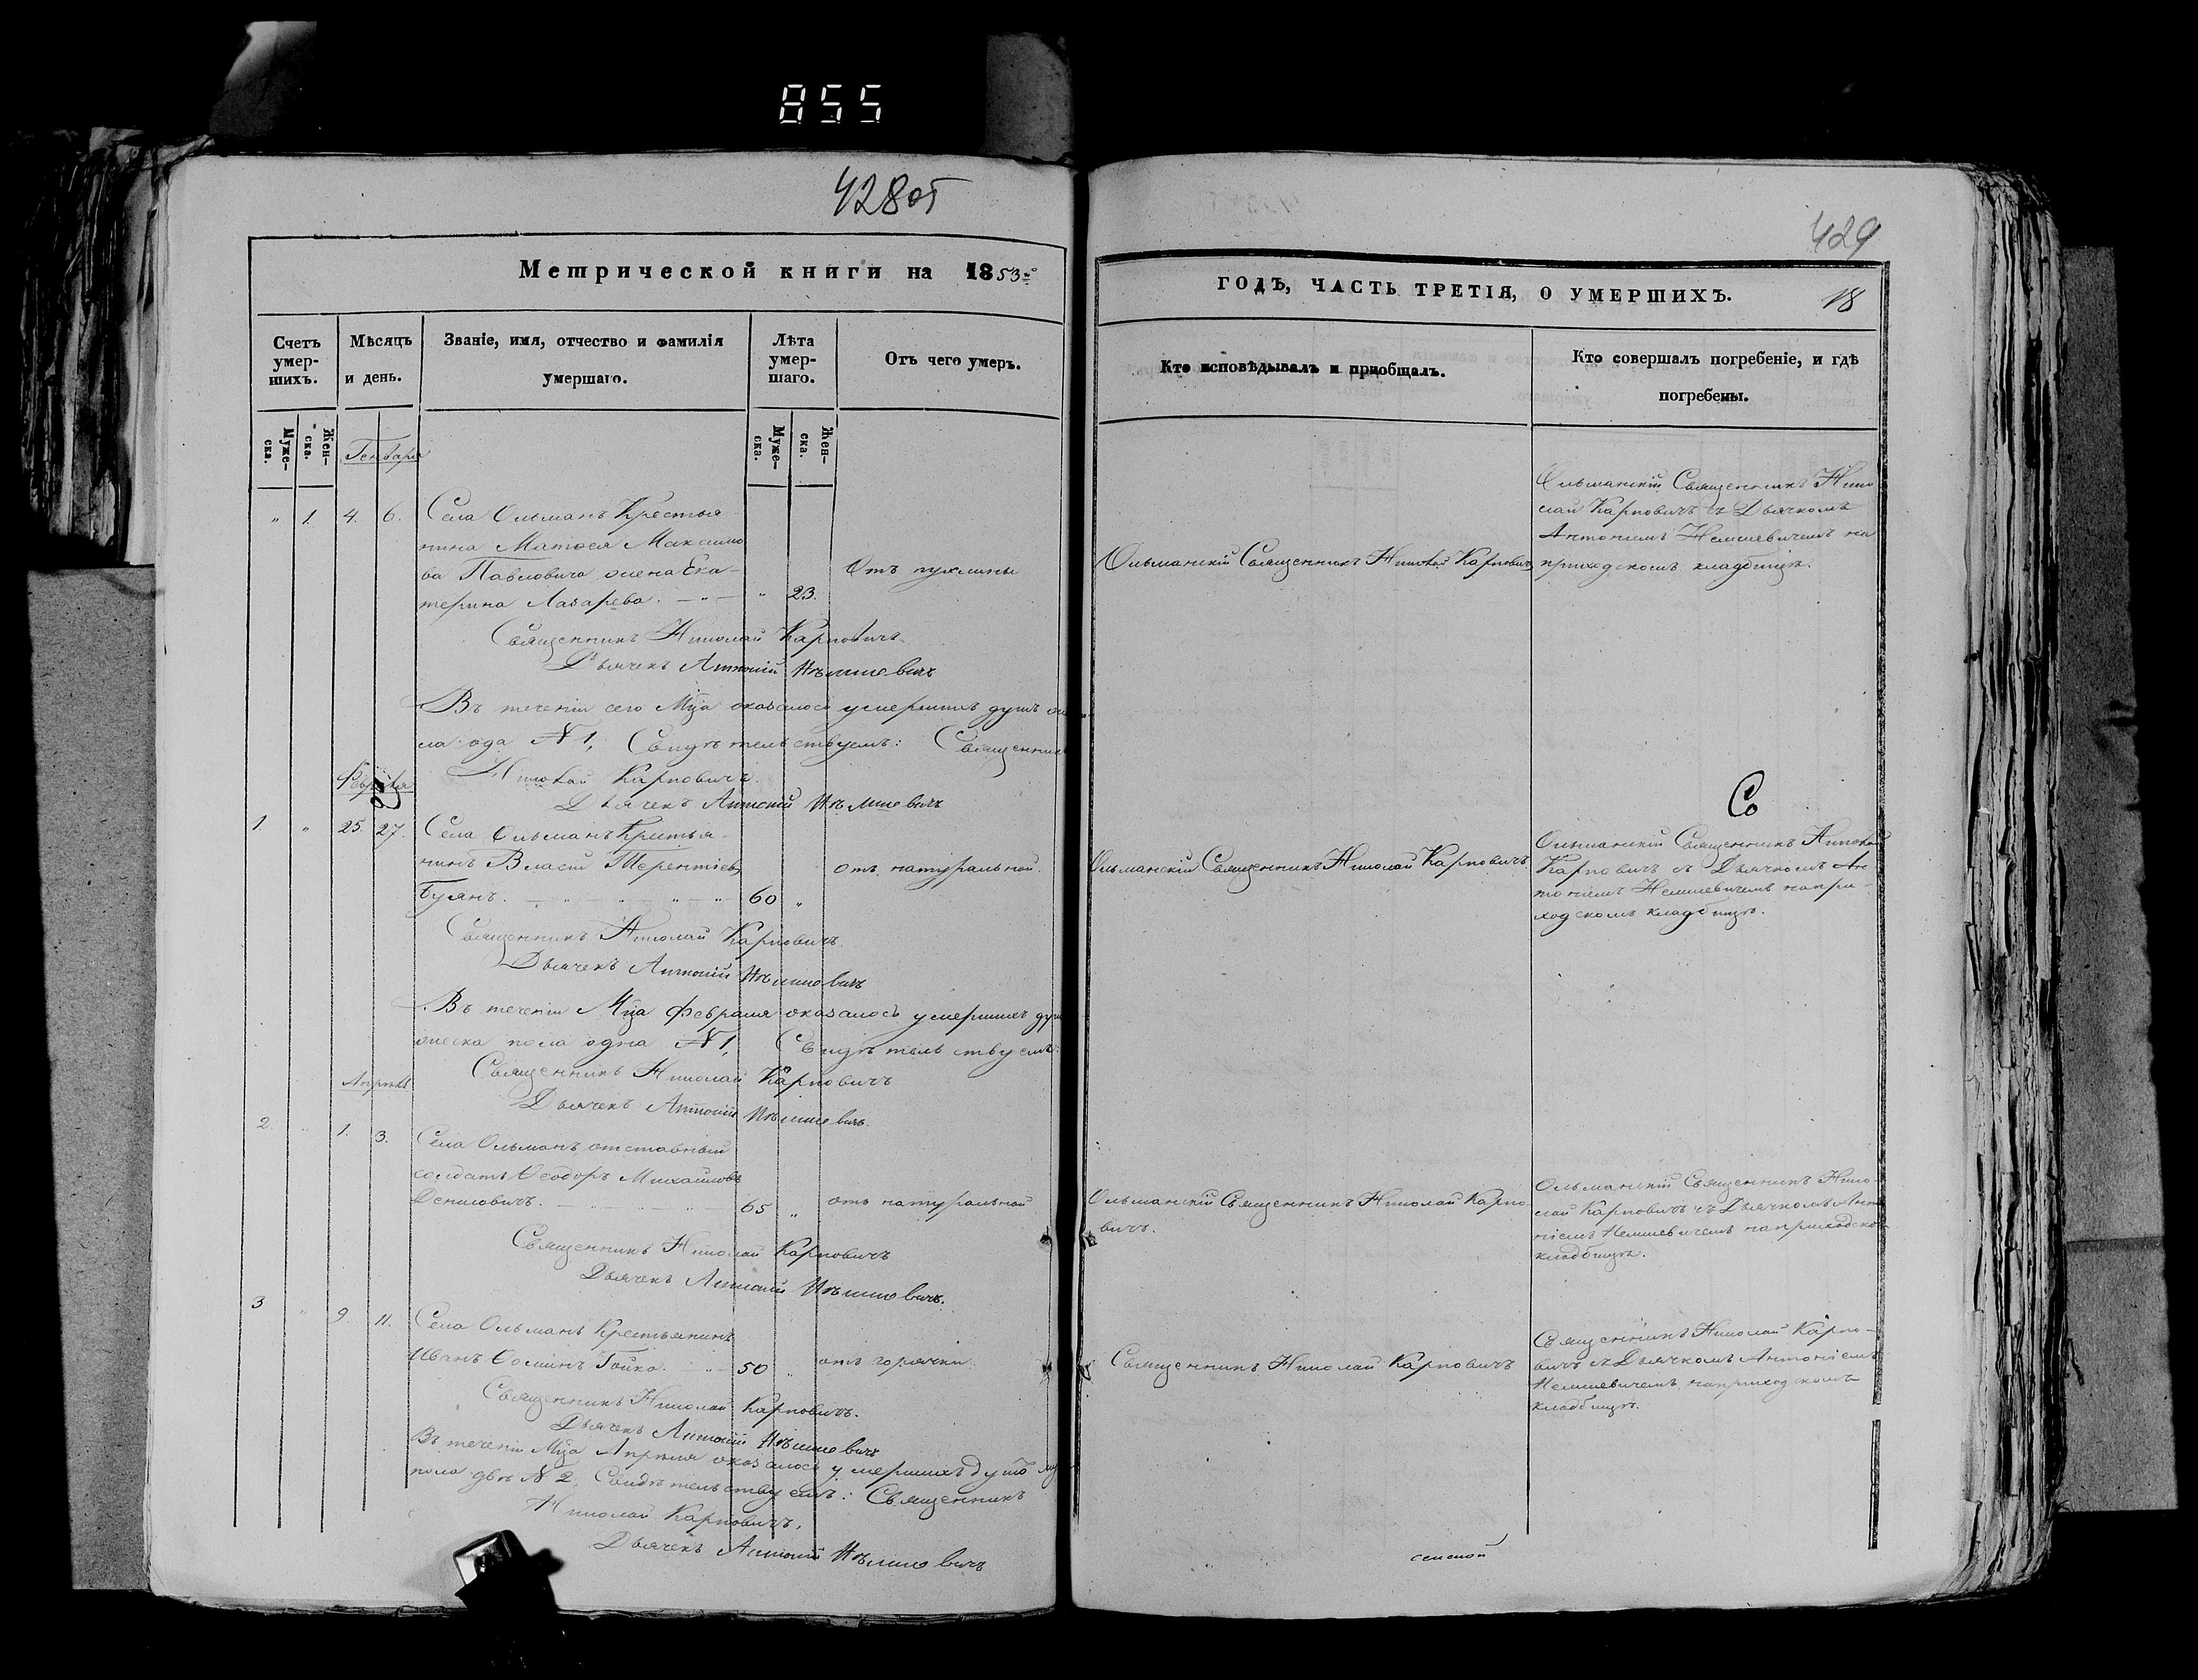 855
428об
429
Метрической книги на 1853
ГОДЪ, ЧАСТЬ ТРЕТІЯ, О УМЕРШИХЪ. 18
Счетъ умер-шихъ.
Мѣсяцъ и день.
Званіе, имя, отчество и фамилія
умершаго.
Лѣта умер-шаго.
Отъ чего умеръ.
Кто исповѣдывалъ и пріобщалъ.
Кто совершалъ погребеніе, и гдѣ
погребены.
Муже-ска.
Жен-ска.
Муже-ска.
Жен-ска.
Генваря
" 1. 4. 6. Села Ольманъ Крестья-
нина Матөея Максимо
ва Павловича жена Ека-
терина Лазарева. " 23.
Отъ пухлины
Ольманскій Священникъ Николай Карповичъ
Ольманскій Священникъ Нико
лай Карповичъ съ Дьячкомъ
Антоніемъ Немшевичемъ на
приходскомъ кладбищѣ.
Священникъ Николай Карповичъ
Дьячекъ Антоній Нѣмшевичъ
Въ теченіи сего Мца оказалось умершихъ душъ
Свидѣтельствуемъ: Священникъ
Николай Карповичъ.
Дьячекъ Антоній Нѣмшевичъ
Февраля
1. " 25. 27. Села Ольманъ Крестья-
нинъ Власій Терентіевъ
Буянъ. 60 "
отъ натуральной.
Ольманскій Священникъ Николай Карповичъ
Ольманскій Священникъ Николай
Карповичъ съ Дьячкомъ Ан-
тоніемъ Немшевичемъ на при-
ходскомъ кладбищѣ.
Священникъ Николай Карповичъ.
Дьячекъ Антоній Нѣмшевичъ
Въ теченіи Мца Февраля оказалось умершихъ душ
пола одна № 1, Свидѣтельствуемъ:
Священникъ Николай Карповичъ
Дьячекъ Антоній Нѣмшевичъ.
Апрѣль
2. " 1. 3. Села Ольманъ отставный
солдатъ Ѳеодоръ Михайловъ
Дениловичъ. 65 "
отъ натуральной
Ольманскій Священникъ Николай Карпо
вичъ.
Ольманскій Священникъ Нико-
лай Карповичъ съ Дьячкомъ Анто
ніемъ Немшевичемъ на приходско
кладбищѣ.
Священникъ Николай Карповичъ
Дьячекъ Антоній Нѣмшевичъ.
3 " 9. 11. Села Ольманъ Крестьянинъ
Иванъ Ѳоминъ Гойко. 50 "
отъ горячки.
Священникъ Николай Карповичъ
Священникъ Николай Карпо-
вичъ съ Дьячкомъ Антоніемъ
Немшевичемъ на приходскомъ
кладбищѣ.
Священникъ Николай Карповичъ.
Дьячекъ Антоній Нѣмшевичъ
Въ теченіи Мца Апрѣля оказалось умершихъ душъ
пола двѣ № 2, Свидѣтельствуемъ: Священникъ
Николай Карповичъ.
Дьячекъ Антоній Нѣмшевичъ